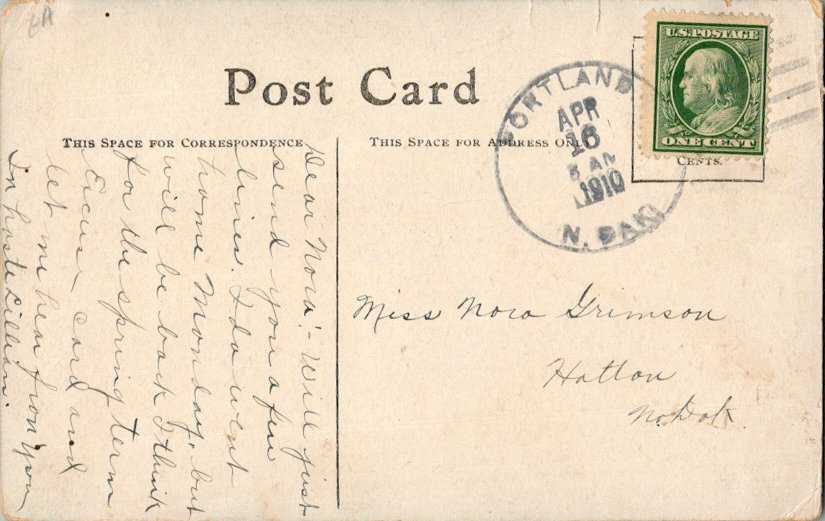 LA
Post Card
THIS SPACE FOR CORRESPONDENCE
THIS SPACE FOR ADDRESS ONLY
U.S. POSTAGE
ONE CENT
CENTS.
PORTLAND
APR
16
1910
N. DAK.
Dear Nora:- Will just
send you a few
lines. I do went
home Monday, but
will be back I think
for the spring term
Excuse card and
let me hear from you
In haste Lillian.
Miss Nora Grimson
Hatton
No. Dak.